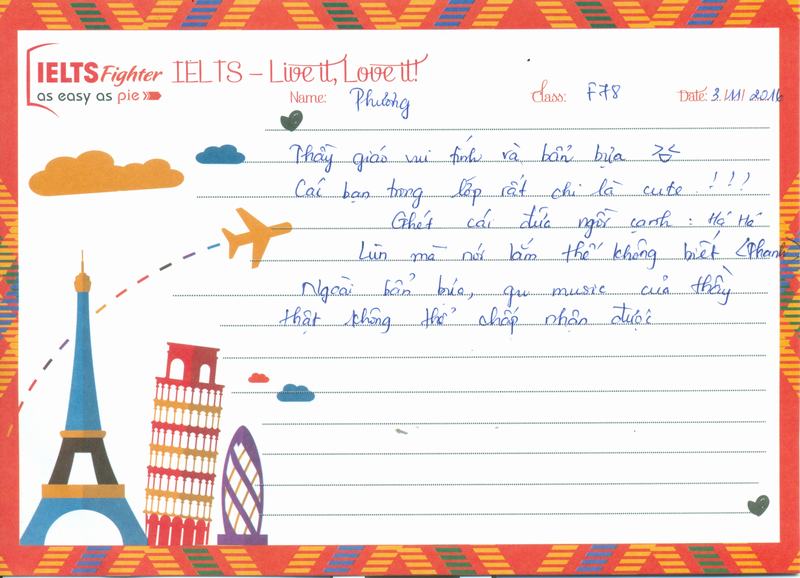 IELTS Fighter
as easy as pie
IELTS – Live it, Love it!
Name: Phương Class: F78 Date: 3/11/2016
Thầy giáo vui tính và bẩn bựa
Các bạn trong lớp rất chi là cute !!!
Ghét cái đứa ngồi cạnh : Há Há
Lùn mà nói lắm thế không biết (Thanh)
Ngoài bẩn bựa, gu music của thầy
thật không thể chấp nhận được